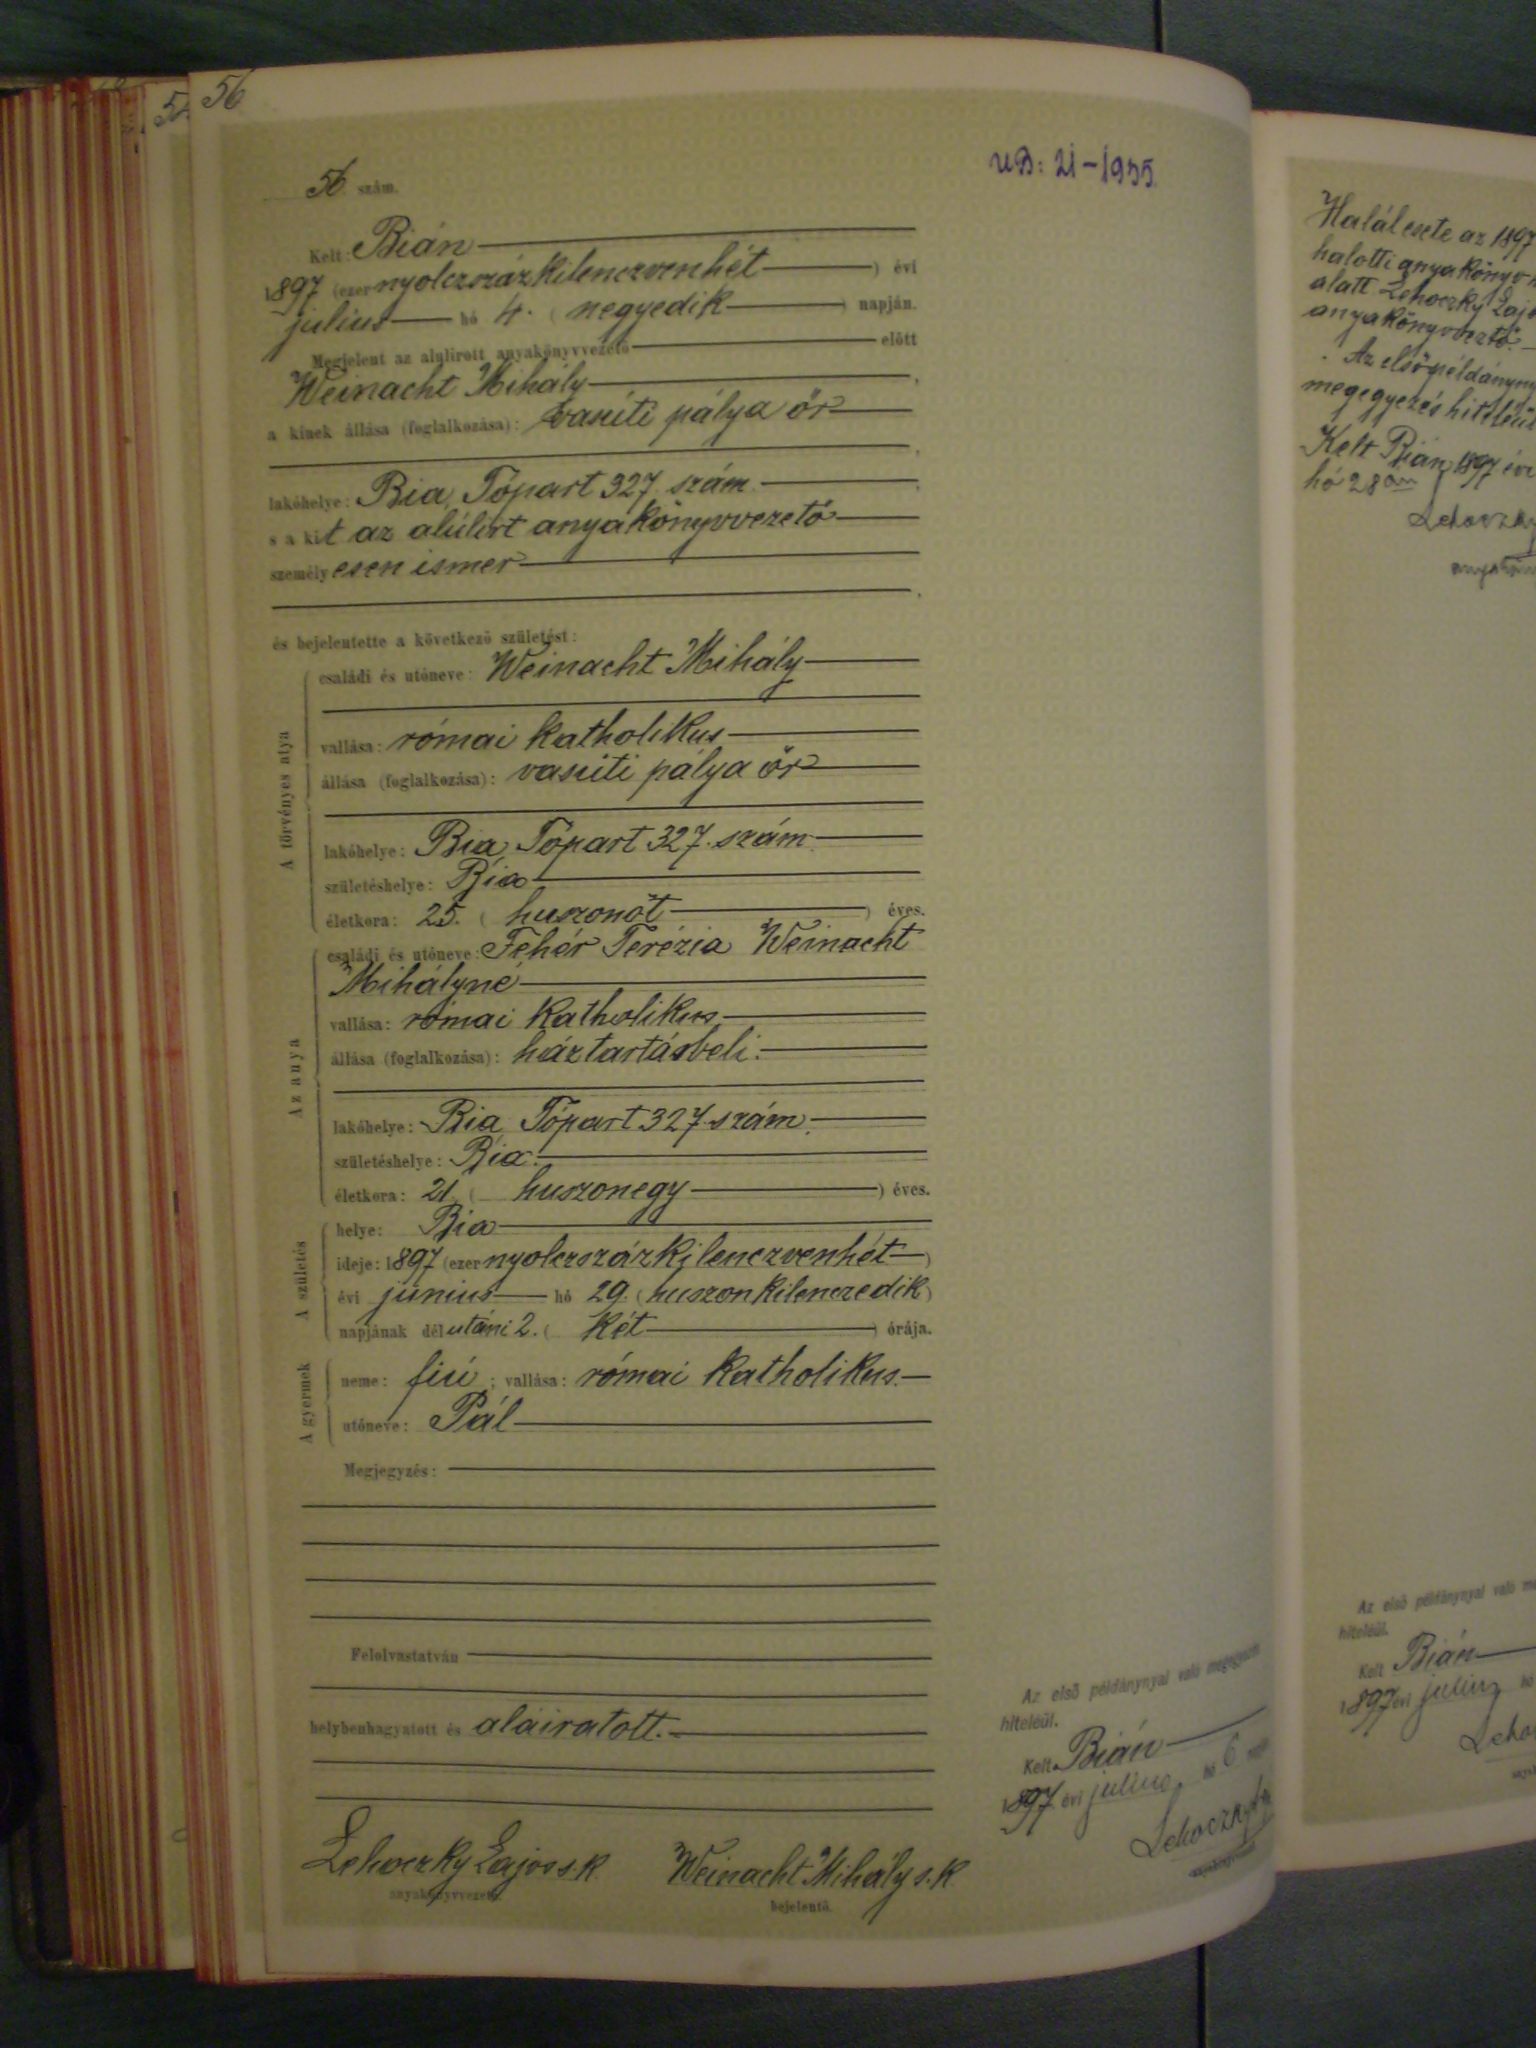 56
56 szám.
UB: 21-1935.
Kelt: Bián
1897 (ezer nyolczszázkilenczvenhét) évi
julius hó 4. (negyedik) napján.
Megjelent az alulirott anyakönyvvezető előtt
Weinacht Mihály,
a kinek állása (foglalkozása): vasúti pálya őr,
lakóhelye: Bia, Tópart 327. szám,
s a kit az alúlírt anyakönyvvezető
személyesen ismer.
és bejelentette a következő születést:
A törvényes atya
családi és utóneve: Weinacht Mihály
vallása: római katholikus
állása (foglalkozása): vasúti pálya őr
lakóhelye: Bia, Tópart 327. szám.
születéshelye: Bia
életkora: 25. (huszonöt) éves.
Az anya
családi és utóneve: Fehér Terézia Weinacht
Mihályné
vallása: római katholikus
állása (foglalkozása): háztartásbeli.
lakóhelye: Bia, Tópart 327 szám.
születéshelye: Bia.
életkora: 21. (huszonegy) éves.
A születés
helye: Bia
ideje: 1897 (ezer nyolczszázkilenczvenhét)
évi junius hó 29. (huszonkilenczedik)
napjának délutáni 2. (két) órája.
A gyermek
neme: fiú; vallása: római katholikus.
utóneve: Pál
Megjegyzés:
Felolvastatván
helybenhagyatott és aláiratott.
Lehoczky Lajos s.k.
anyakönyvvezető.
Weinacht Mihály s.k.
bejelentő.
Az első példánynyal való megegyezés
hiteléül.
Kelt Bián
1897 évi julius hó 6 napján
Lehoczky
Halálesete az 1897
halotti anyakönyv
alatt Lehoczky Lajos
anyakönyvvezető.
Az első példányny
megegyezés hiteléül
Kelt Bián 1897 évi
hó 28án
Lehoczky
Az első példánynyal való
hiteléül.
Kelt Bián
1897 évi julius hó